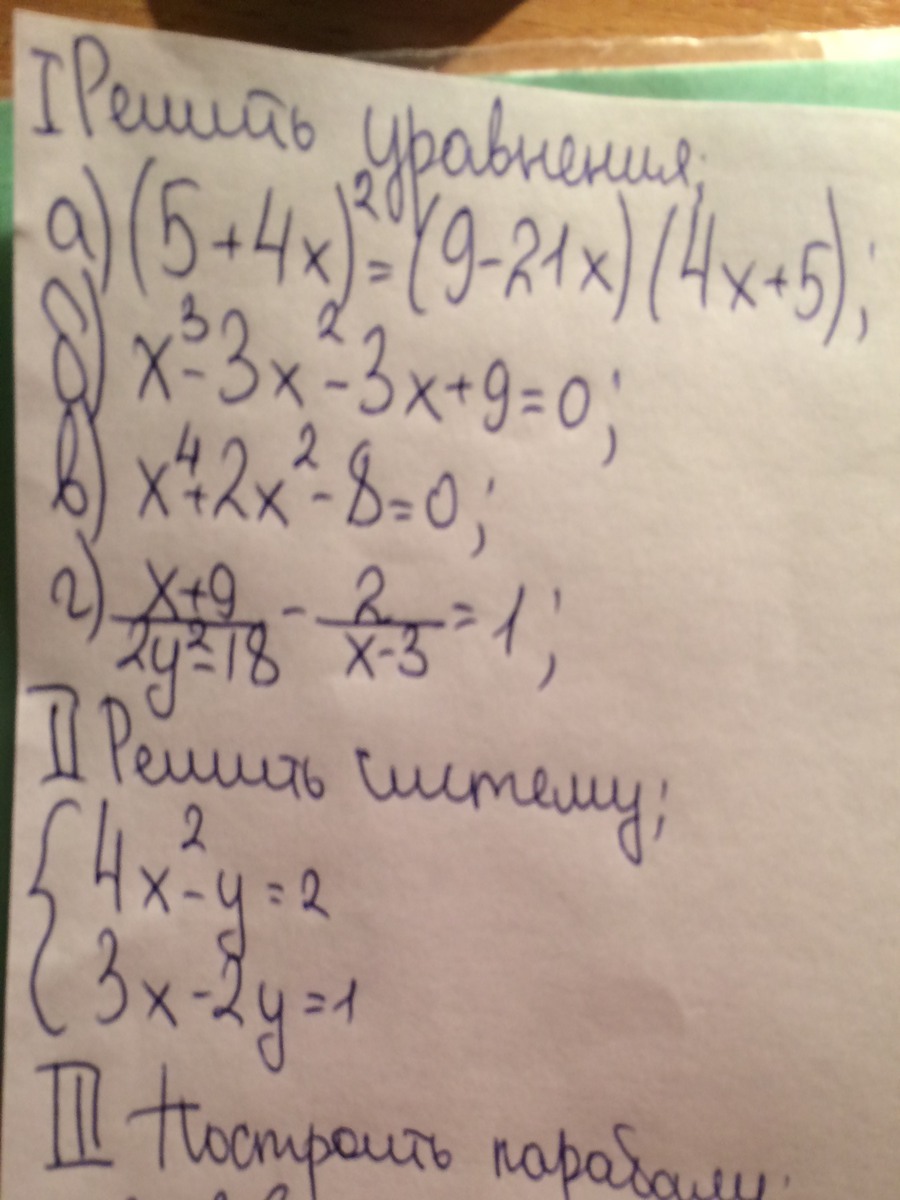 I Решить уравнения;
а) (5+4x)²=(9-21x)(4x+5);
б) x³-3x²-3x+9=0;
в) x⁴+2x²-8=0;
г) x+9/2y²-18 - 2/x-3 = 1;
II Решить систему;
{4x²-y=2
3x-2y=1
III Построить параболу;